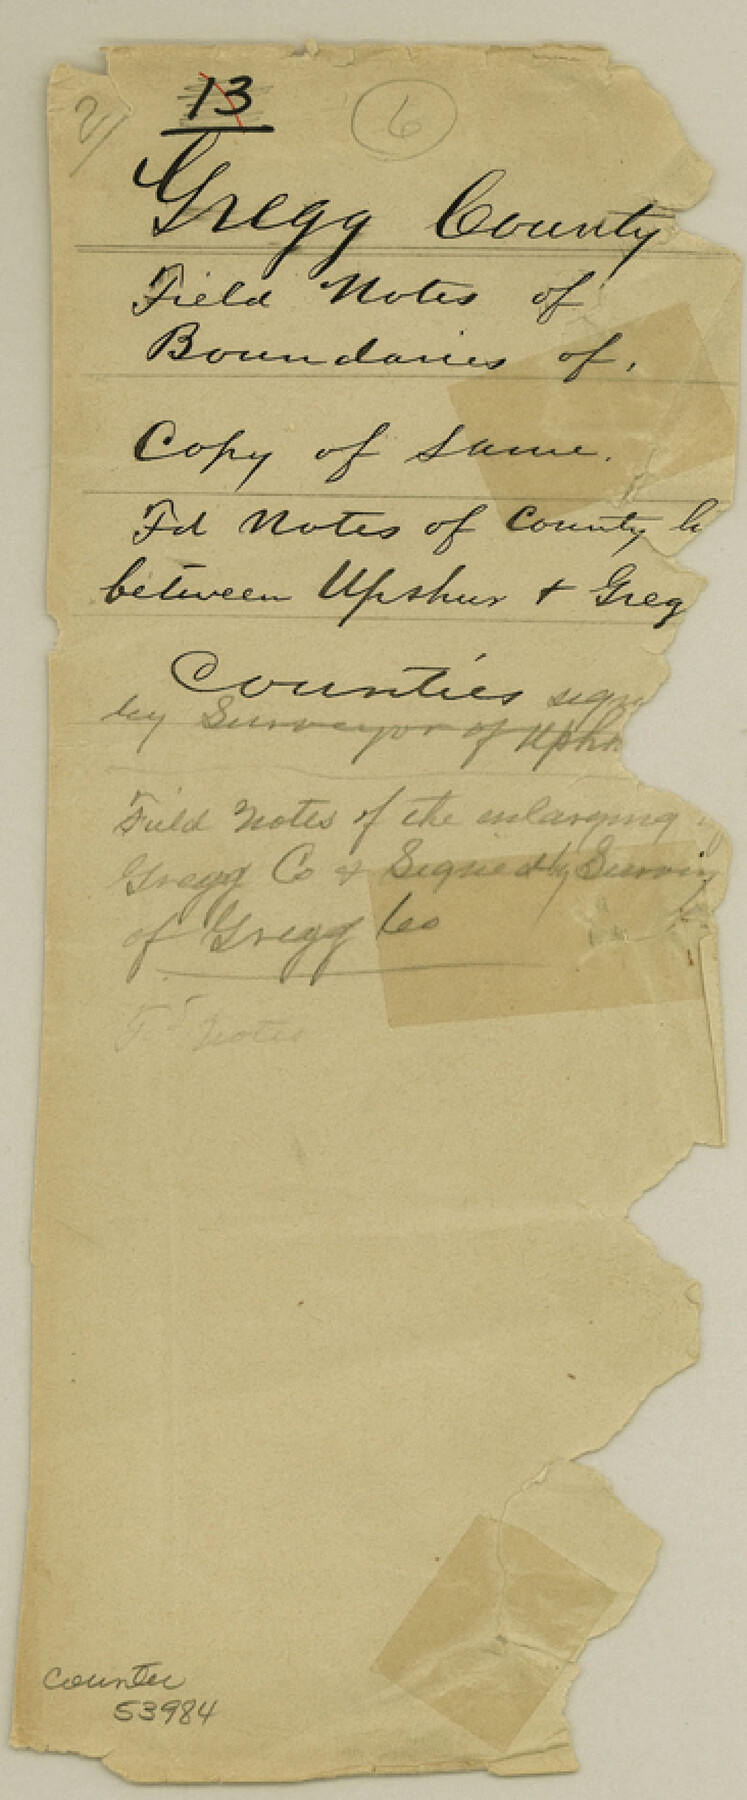 2/ 13 6
Gregg County
Field Notes of
Boundaries of.
Copy of same.
Fd Notes of County
between Upshur + Greg
Counties
by Surveyor of
Field Notes of the enlarging
Gregg Co & Signed by
of Gregg Co
Fd Notes
counter
53984